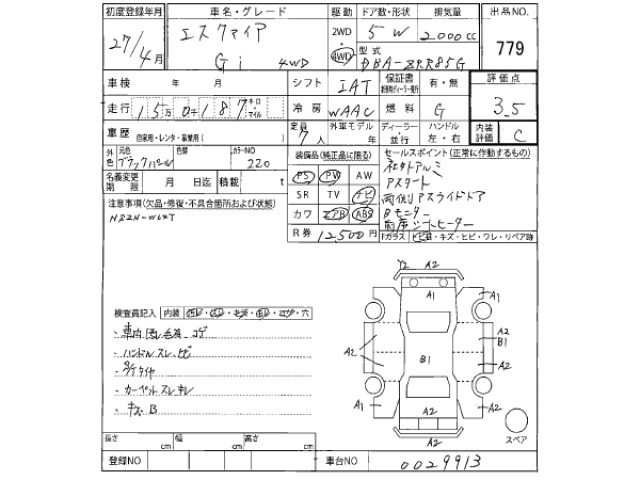 初度登録年月 車名・グレード 駆動 ドア数・形状 排気量 出品NO.
27/4月 エスクァイア 2WD 5 W 2000cc 779
Gi 4WD 4WD 型式 DBA-ZRR85G
車検 年 月 シフト IAT 保証書 有・無 評価点
走行 15万0千187キロマイル 冷房 WAAC 燃料 G 3.5
車歴 自家用・レンタ・事業用( ) 定員 7人 外車モデル 年 ディーラー・並行 ハンドル 左・右 内装評価 C
外色 元色 ブラックパール 色替 カラーNO 220 装備品(純正品に限る) セールスポイント(正常に作動するもの)
名義変更期限 月 日迄 積載 t PS PW AW 社外アルミ
Pスタート
注意事項(欠品・修復・不具合箇所および状態) SR TV ナビ 両側Pスライドドア
NBZN-W64T カワ エアB ABS Bモニター
前席シートヒーター
R券 12,500円 Fガラス トビ石・キズ・ヒビ・ワレ・リペア跡
Y2 A2
A1 A1
検査員記入 内装 ・穴
・ハンドルスレ、ヒビ
・タイヤ
・カーペットスレ、キレ
・キズB
A2 A2 B1 B1 A2
A1 A2 A2 A2
スペア
長さ cm 幅 cm 高さ cm
登録NO 車台NO 0029913